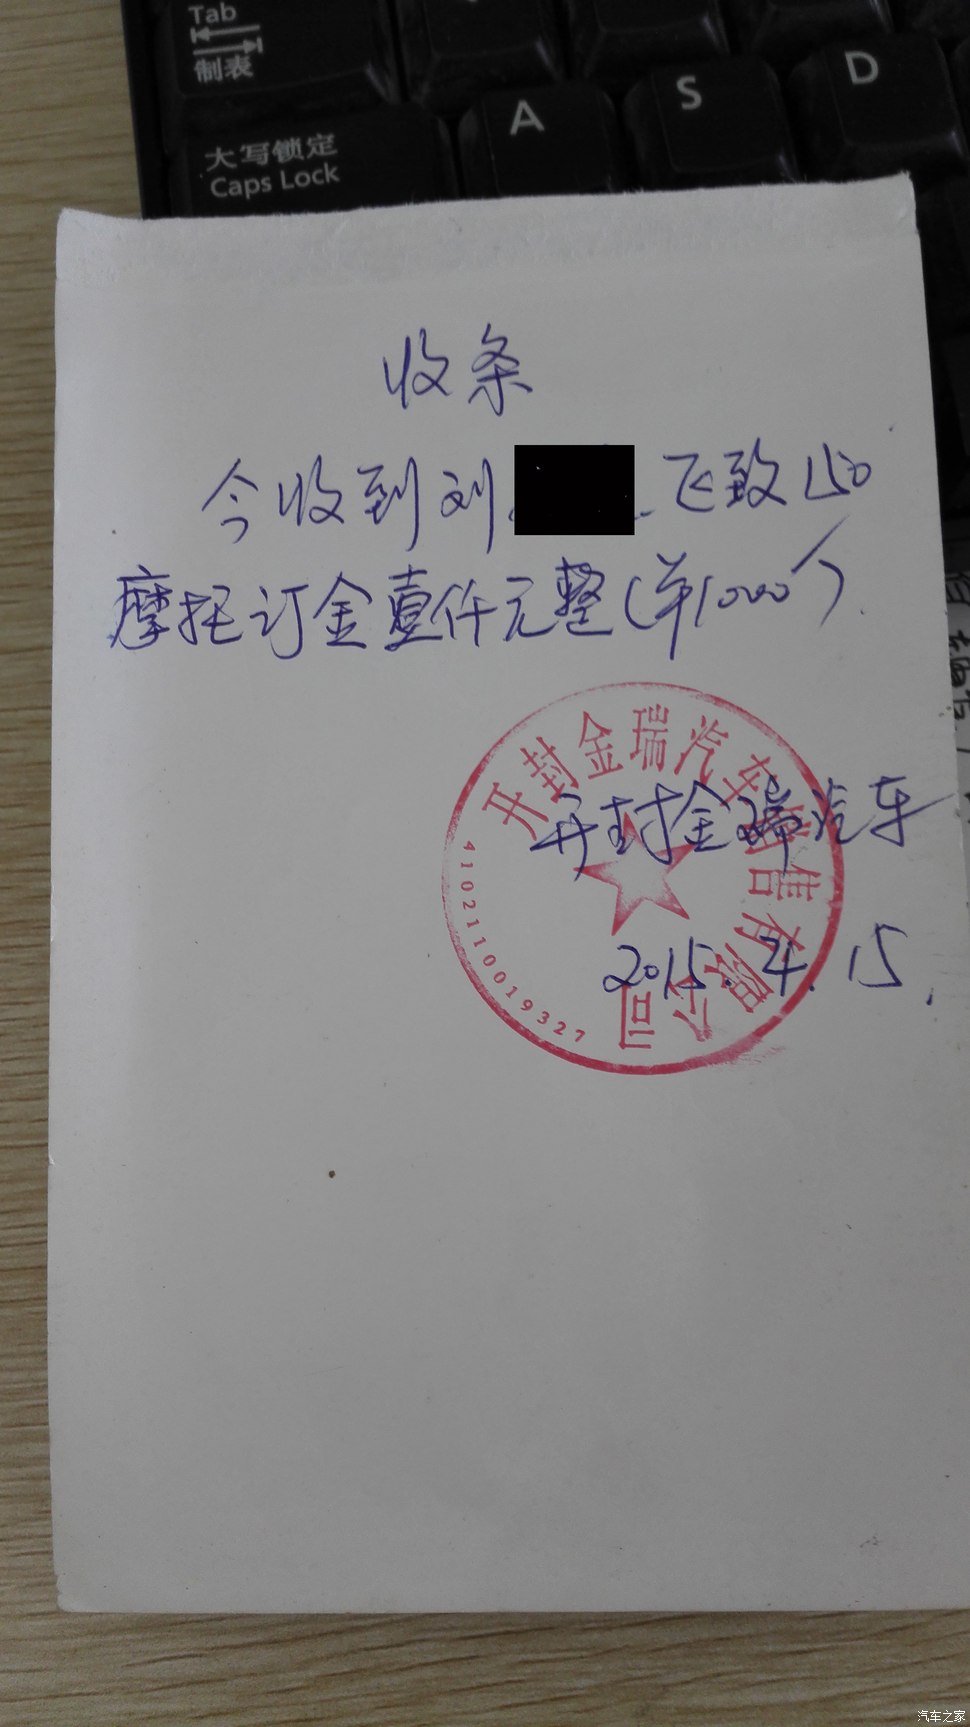 Tab
制表
A
S
D
大写锁定
Caps Lock
收条
今收到刘 飞致150
摩托订金壹仟元整(单1000个)
开封金瑞汽车销售有限公司
4102110019327
开封金瑞汽车
2015.4.15
汽车之家